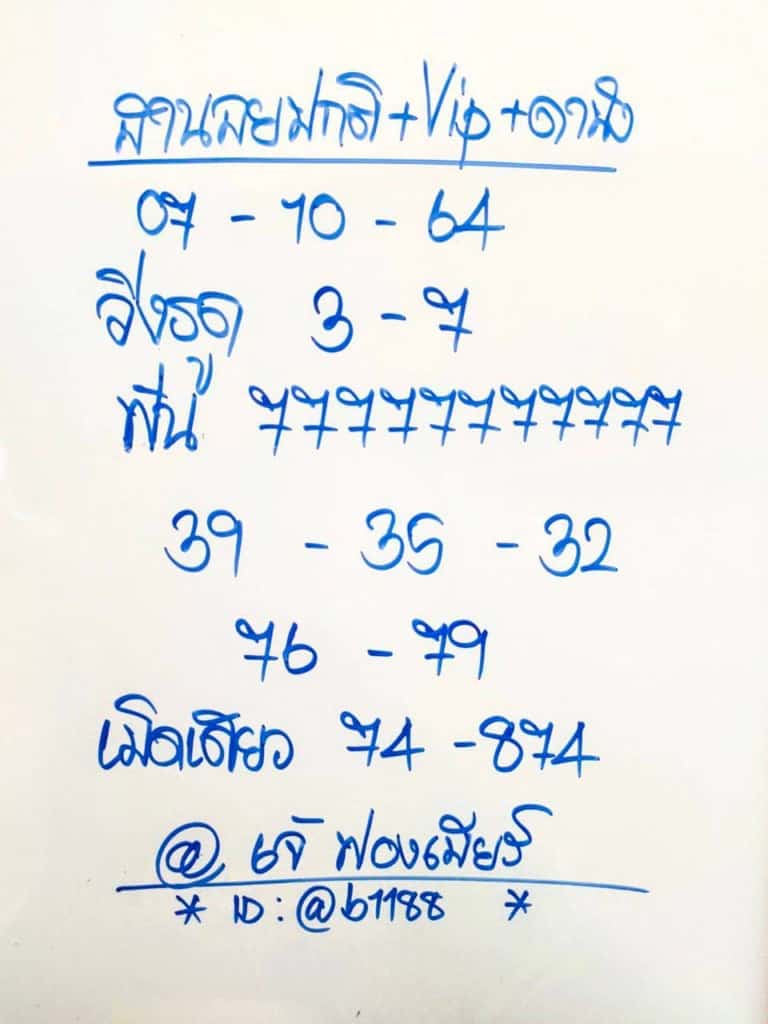 ลาวนลอยปกติ+Vip+ฮานัง
07 - 10 - 64
วิ่งรูด 3 - 7
ฟันู 7777777777
39 - 35 - 32
76 - 79
เม็ดเดียว 74 - 874
@ เจ๊ ฟองเบียร์
* ID : @b1188 *